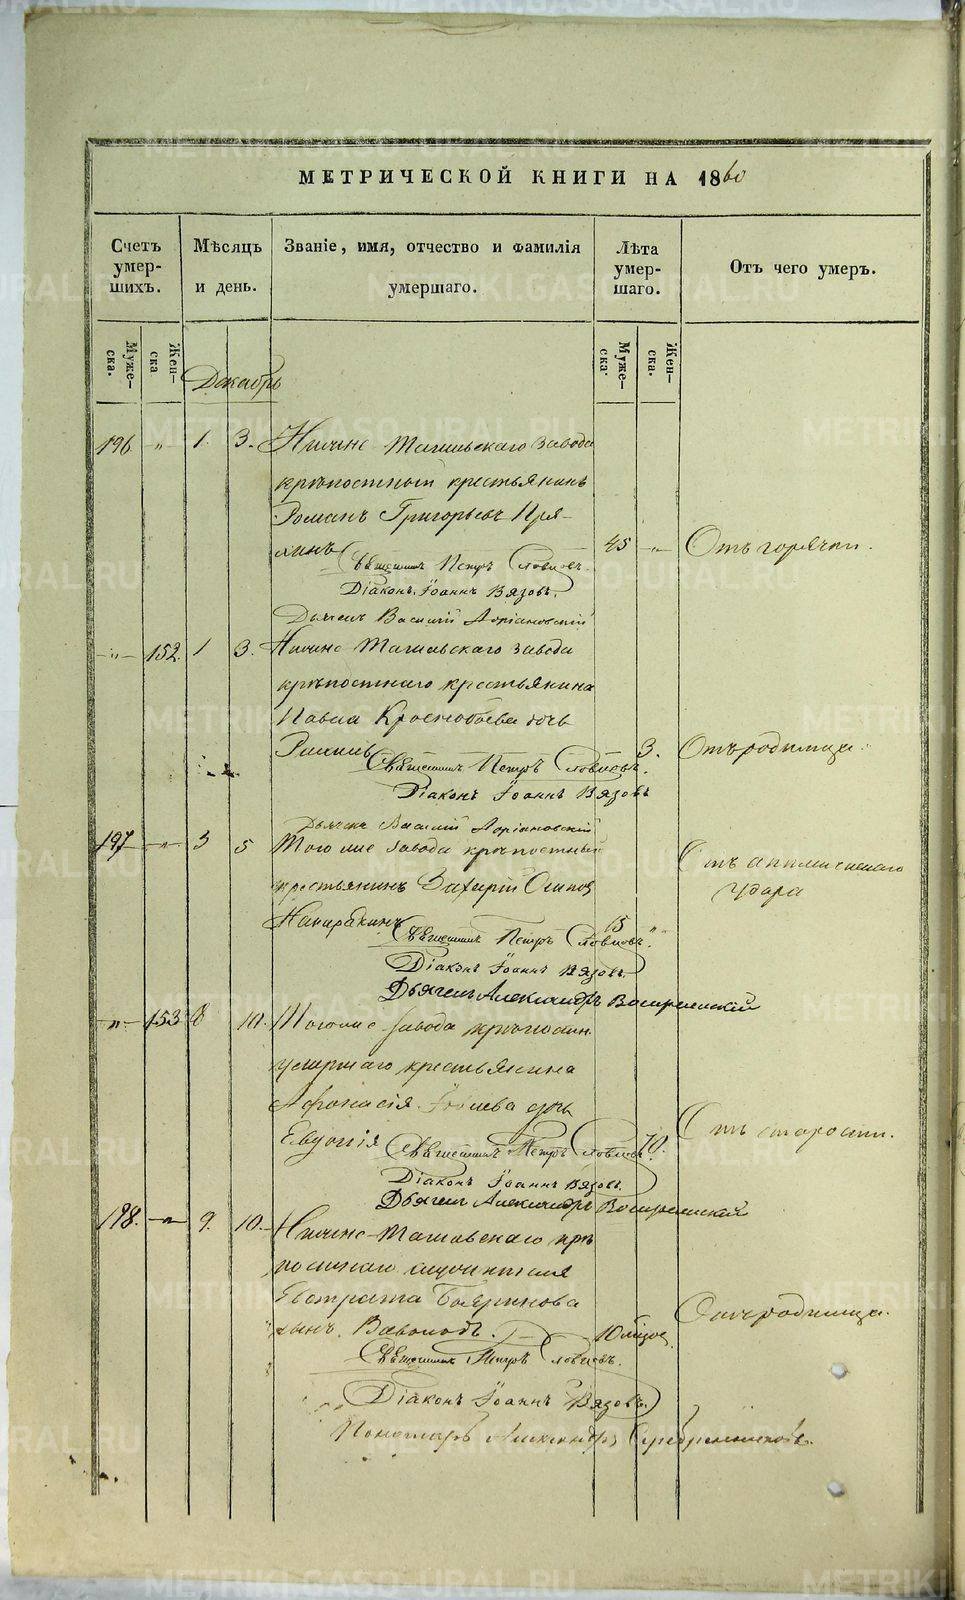 МЕТРИЧЕСКОЙ КНИГИ НА 1860
Счетъ умер- шихъ.
Мѣсяцъ и день.
Званіе, имя, отчество и фамилія умершаго.
Лѣта умер- шаго.
Отъ чего умеръ.
Муже- ска.
Жен- ска
Муже- ска.
Жен- ска.
Декабрь
196 " 1. 3. Нижне Тагильскаго завода
крѣпостный крестьянинъ
Романъ Григорьевъ
45 " Отъ горячки.
Священникъ Петръ Словцовъ.
Діаконъ Іоаннъ Вязовъ.
Дьячекъ Василій Адріановскій
" 152. 1 3. Нижне Тагильскаго завода
крѣпостнаго крестьянина
Павла Краснобаева дочь
3. Отъ родимца.
Священникъ Петръ Словцовъ.
Діаконъ Іоаннъ Вязовъ
Дьячекъ Василій Адріановскій
197 " 3 5 Того же завода крѣпостный
крестьянинъ Захарій Осиповъ
Отъ апоплическаго
удара
Священникъ Петръ Словцовъ.
Діаконъ Іоаннъ Вязовъ.
Дьячекъ Александръ Воскресенскій
" 153 8 10. Того же завода
умершаго крестьянина
Афонасія дочь
Евдокія 70. Отъ старости.
Священникъ Петръ Словцовъ.
Діаконъ Іоаннъ Вязовъ.
Дьячекъ Александръ Воскресенскій
198. " 9. 10. Нижне-Тагильскаго крѣ
постнаго служителя
Евстрата
сынъ 10 мѣсяц. Отъ родимца.
Священникъ Петръ Словцовъ.
Діаконъ Іоаннъ Вязовъ.
Пономарь Александръ Серебренниковъ.
METRIKI.GASO-URAL.RU